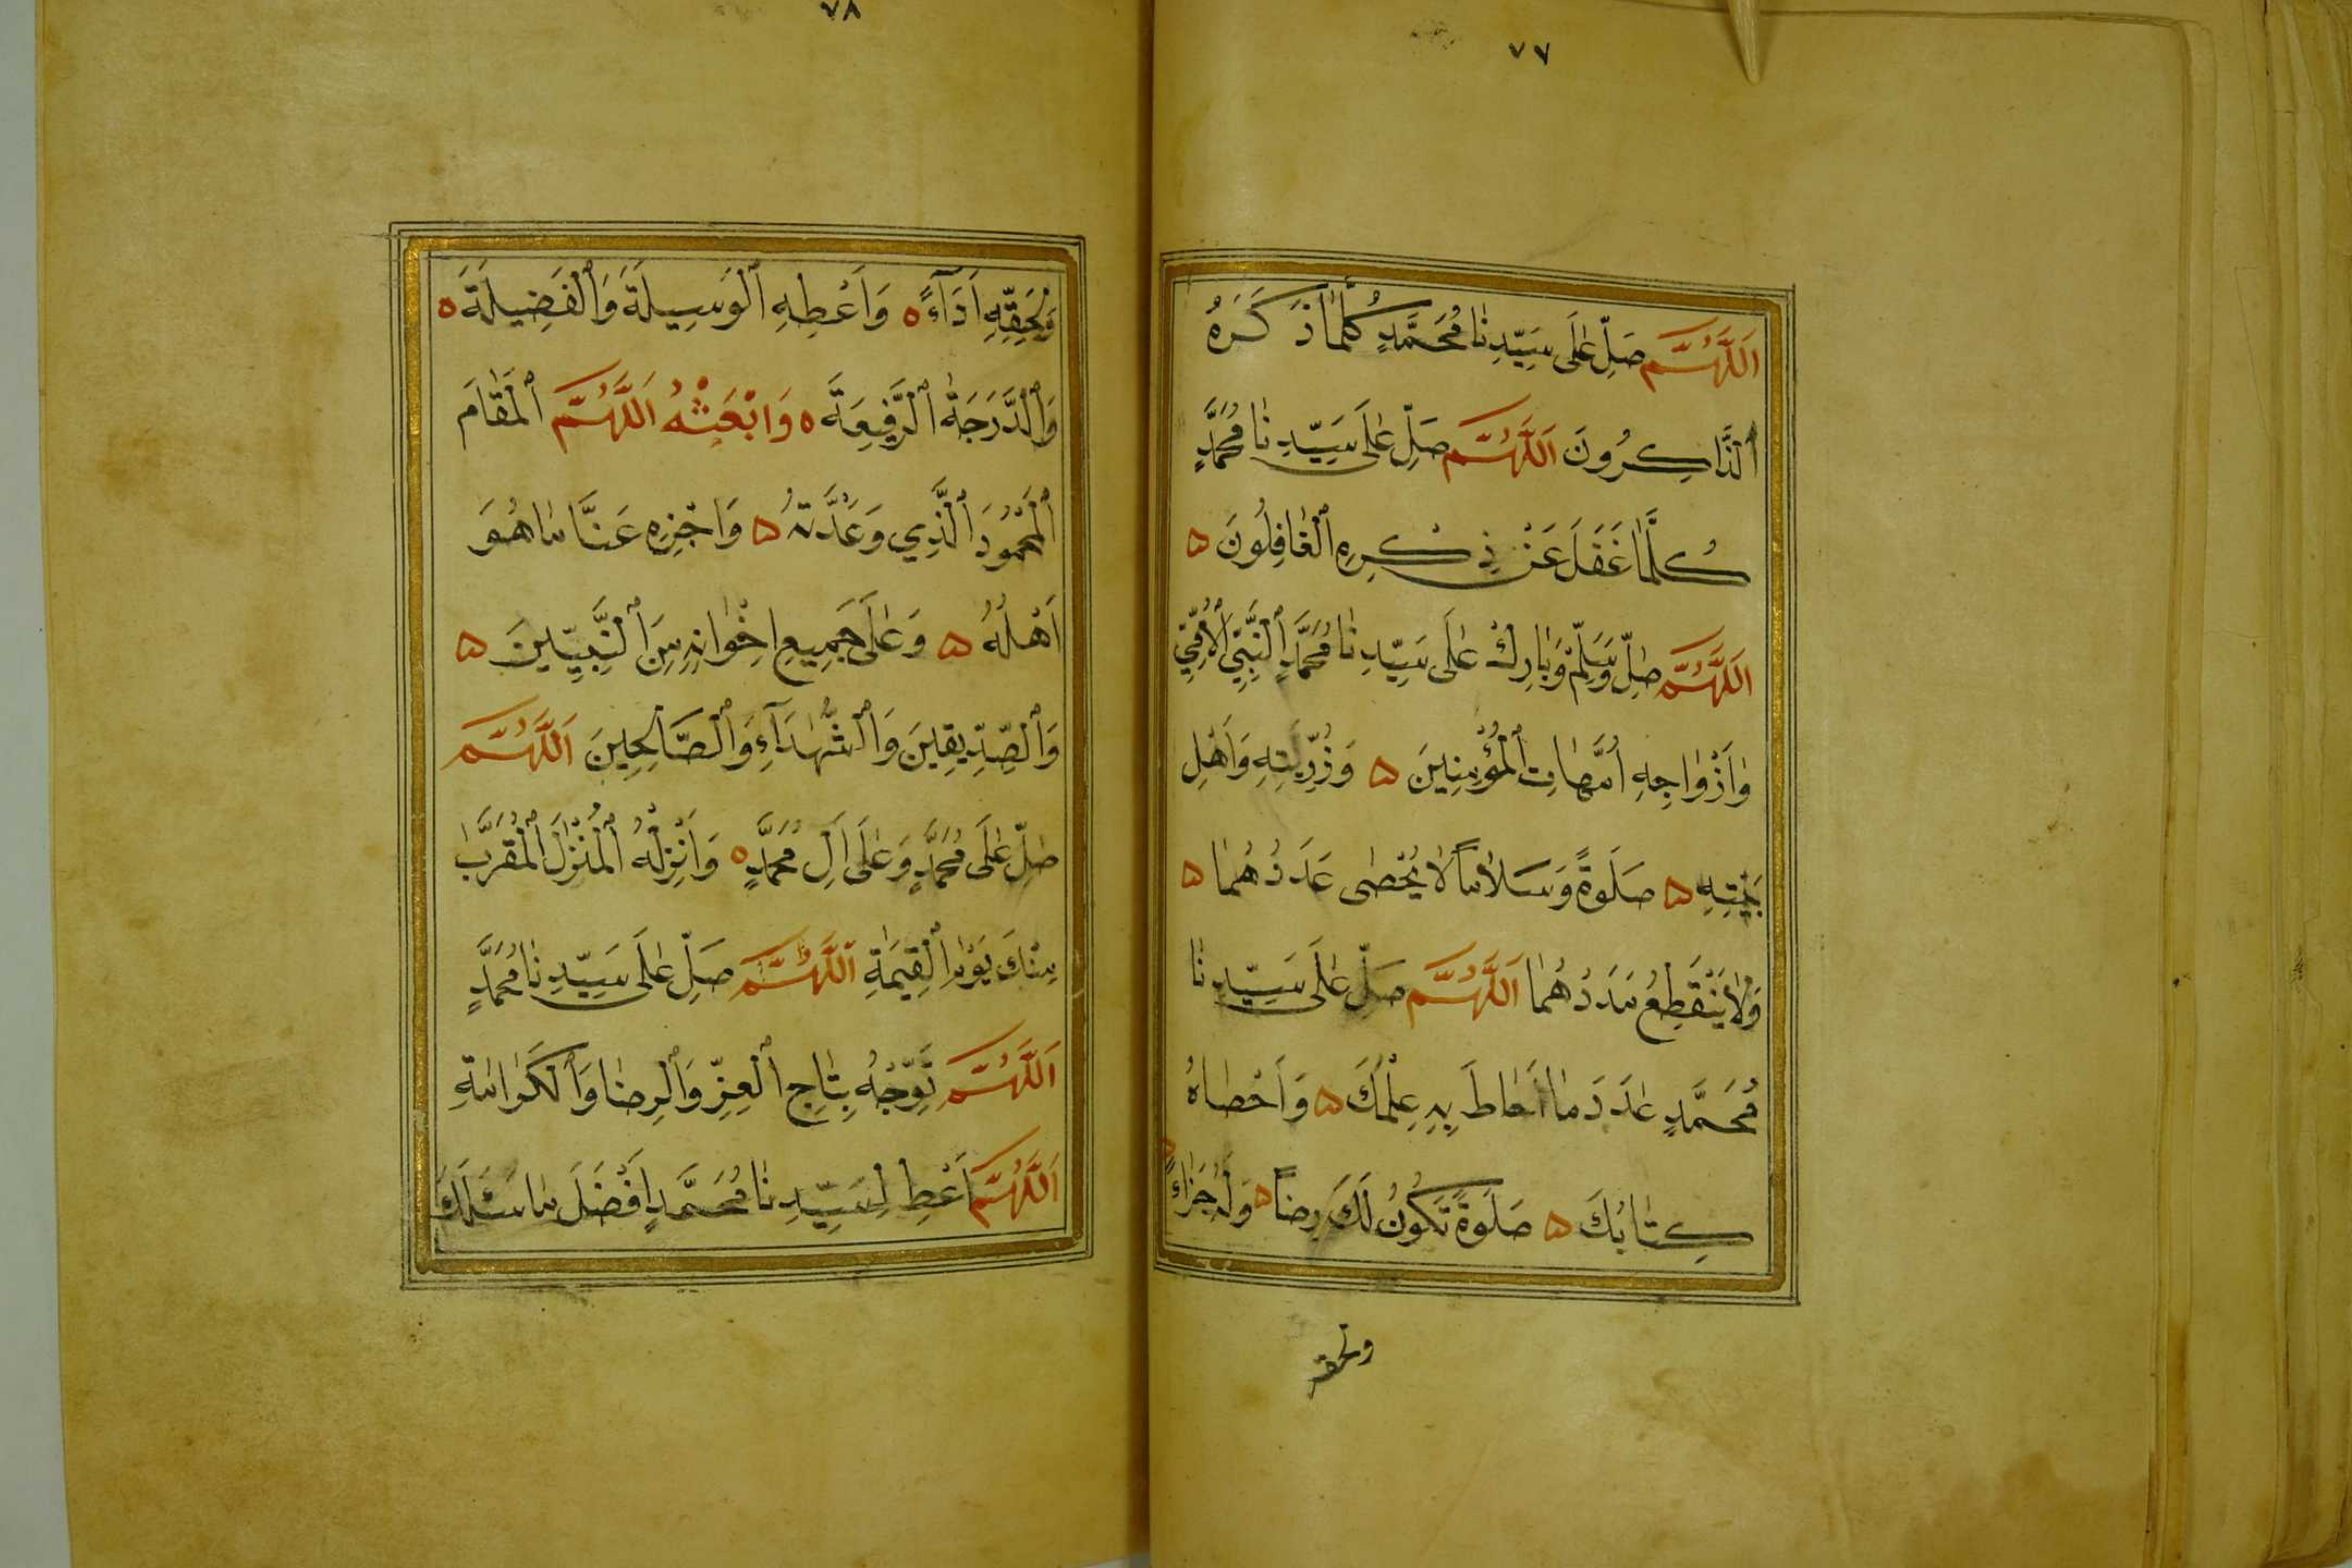 ٧٧
اَللّٰهُمَّ صَلِّ عَلٰى سَيِّدِنَا مُحَمَّدٍ كُلَّمَا ذَكَرَهُ
ٱلذَّاكِرُونَ اَللّٰهُمَّ صَلِّ عَلٰى سَيِّدِنَا مُحَمَّدٍ
كُلَّمَا غَفَلَ عَنْ ذِكْرِهِ ٱلْغَافِلُونَ ۵
اَللّٰهُمَّ صَلِّ وَسَلِّمْ وَبَارِكْ عَلٰى سَيِّدِنَا مُحَمَّدٍ ٱلنَّبِيِّ ٱلْأُمِّيِّ
وَاَزْوَاجِهِ اُمَّهَاتِ ٱلْمُؤْمِنِينَ ۵ وَذُرِّيَّتِهِ وَاَهْلِ
بَيْتِهِ ۵ صَلَوةً وَسَلَامًا لَا يُحْصٰى عَدَدُهُمَا ۵
وَلَا يَنْقَطِعُ مَدَدُهُمَا اَللّٰهُمَّ صَلِّ عَلٰى سَيِّدِنَا
مُحَمَّدٍ عَدَدَ مَا اَحَاطَ بِهِ عِلْمُكَ ۵ وَاَحْصَاهُ
كِتَابُكَ ۵ صَلَوةً تَكُونُ لَكَ رِضًا ۵ وَلَهُ جَزَاءً ۵
ولحقه
٧٨
وَلِحَقِّهِ اَدَآءً ٥ وَاَعْطِهِ ٱلْوَسِيلَةَ وَٱلْفَضِيلَةَ ٥
وَٱلدَّرَجَةَ ٱلرَّفِيعَةَ ٥ وَابْعَثْهُ اَللّٰهُمَّ ٱلْمَقَامَ
ٱلْمَحْمُودَ ٱلَّذِي وَعَدْتَهُ ۵ وَاجْزِهِ عَنَّا مَا هُوَ
اَهْلُهُ ۵ وَعَلٰى جَمِيعِ اِخْوَانِهِ مِنَ ٱلنَّبِيِّينَ ۵
وَٱلصِّدِّيقِينَ وَٱلشُّهَدَآءِ وَٱلصَّالِحِينَ اَللّٰهُمَّ
صَلِّ عَلٰى مُحَمَّدٍ وَعَلٰى اٰلِ مُحَمَّدٍ ٥ وَاَنْزِلْهُ ٱلْمُنْزَلَ ٱلْمُقَرَّبَ
مِنْكَ يَوْمَ ٱلْقِيٰمَةِ اَللّٰهُمَّ صَلِّ عَلٰى سَيِّدِنَا مُحَمَّدٍ
اَللّٰهُمَّ تَوِّجْهُ بِتَاجِ ٱلْعِزِّ وَٱلرِّضَا وَٱلْكَرَامَةِ
اَللّٰهُمَّ اَعْطِ لِسَيِّدِنَا مُحَمَّدٍ اَفْضَلَ مَا سَئَلَكَ